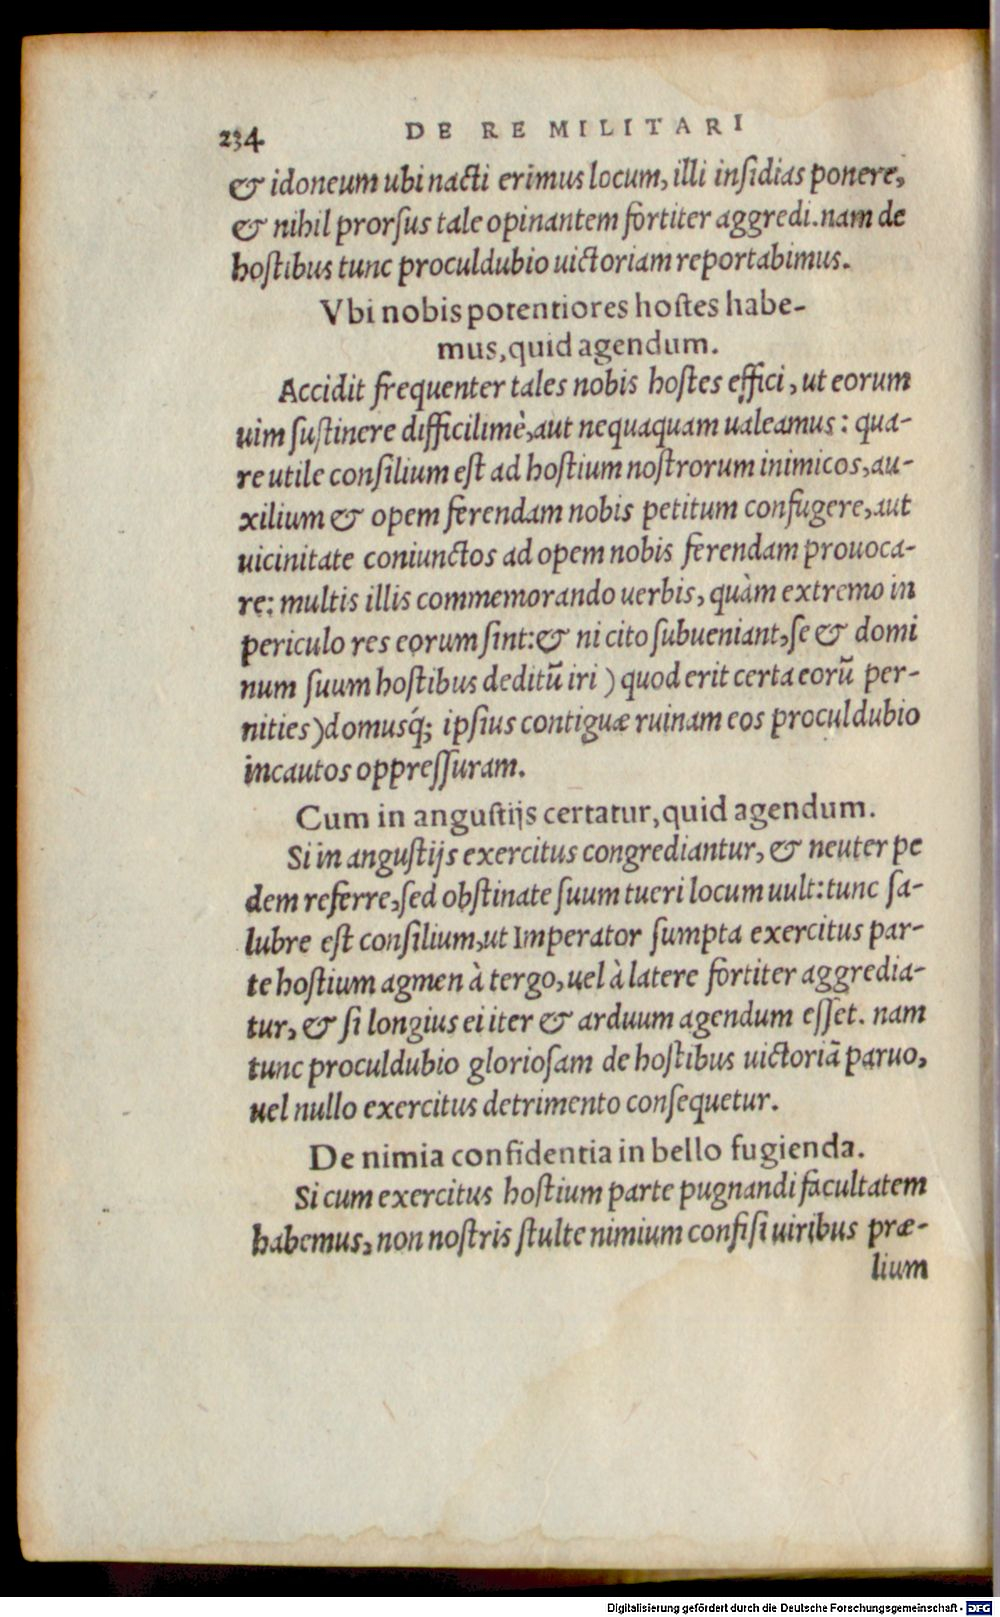 234 DE RE MILITARI
& idoneum ubi nacti erimus locum, illi inſidias ponere,
& nihil prorſus tale opinantem fortiter aggredi. nam de
hoſtibus tunc proculdubio uictoriam reportabimus.
Vbi nobis potentiores hoſtes habe-
mus, quid agendum.
Accidit frequenter tales nobis hoſtes effici, ut eorum
uim ſuſtinere difficilimè, aut nequaquam ualeamus: qua-
re utile conſilium eſt ad hoſtium noſtrorum inimicos, au-
xilium & opem ferendam nobis petitum confugere, aut
uicinitate coniunctos ad opem nobis ferendam prouoca-
re: multis illis commemorando uerbis, quàm extremo in
periculo res eorum ſint: & ni cito ſubueniant, ſe & domi
num ſuum hoſtibus deditū iri ) quod erit certa eorū per-
nities) domusq́; ipſius contiguæ ruinam eos proculdubio
incautos oppreſſuram.
Cum in anguſtijs certatur, quid agendum.
Si in anguſtijs exercitus congrediantur, & neuter pe
dem referre, ſed obſtinate ſuum tueri locum uult: tunc ſa-
lubre eſt conſilium, ut Imperator ſumpta exercitus par-
te hoſtium agmen à tergo, uel à latere fortiter aggredia-
tur, & ſi longius ei iter & arduum agendum eſſet. nam
tunc proculdubio glorioſam de hoſtibus uictoriā paruo,
uel nullo exercitus detrimento conſequetur.
De nimia confidentia in bello fugienda.
Si cum exercitus hoſtium parte pugnandi facultatem
habemus, non noſtris ſtulte nimium confiſi uiribus præ-
lium
Digitalisierung gefördert durch die Deutsche Forschungsgemeinschaft - DFG